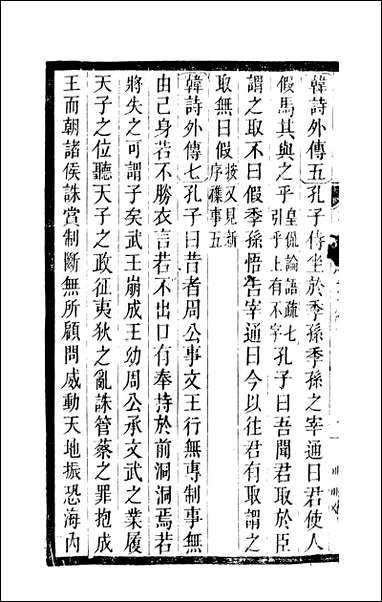 韓詩外傳五孔子侍坐於季孫季孫之宰通曰君使人
假馬其與之乎皇侃論語疏七引乎上有不字孔子曰吾聞君取於臣
謂之取不曰假季孫悟吿宰通曰今以往君有取謂之
取無曰假按又見新序襍事五
韓詩外傳七孔子曰昔者周公事文王行無專制事無
由己身若不勝衣言若不出口有奉持於前洞洞焉若
將失之可謂子矣武王崩成王幼周公承文武之業履
天子之位聽天子之政征夷狄之亂誅管蔡之罪抱成
王而朝諸侯誅賞制斷無所顧問威動天地振恐海內